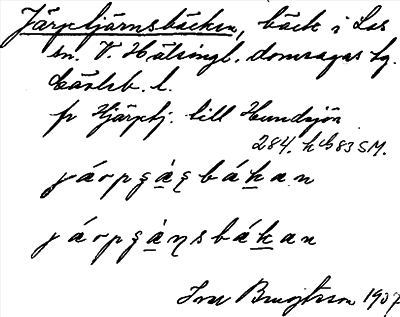 Järptjärnsbäcken, bäck i Los
sn. V. Hälsingl. domsagas tg.
Gävleb. l.
fr Hjärptj. till Hundsjön
284. h b 83 SM.
järpçạ̈çbäkan
järpçạ̈ŋsbäkan
Ivar Bengtsson 1937